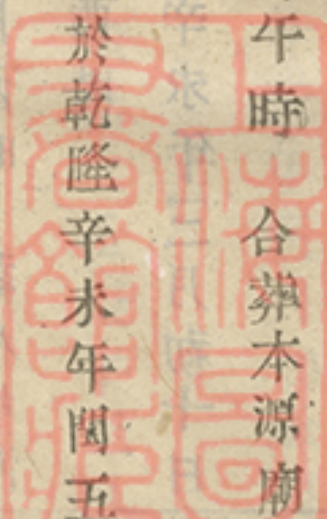 午時　合葬本源廟
於乾隆辛未年閏五